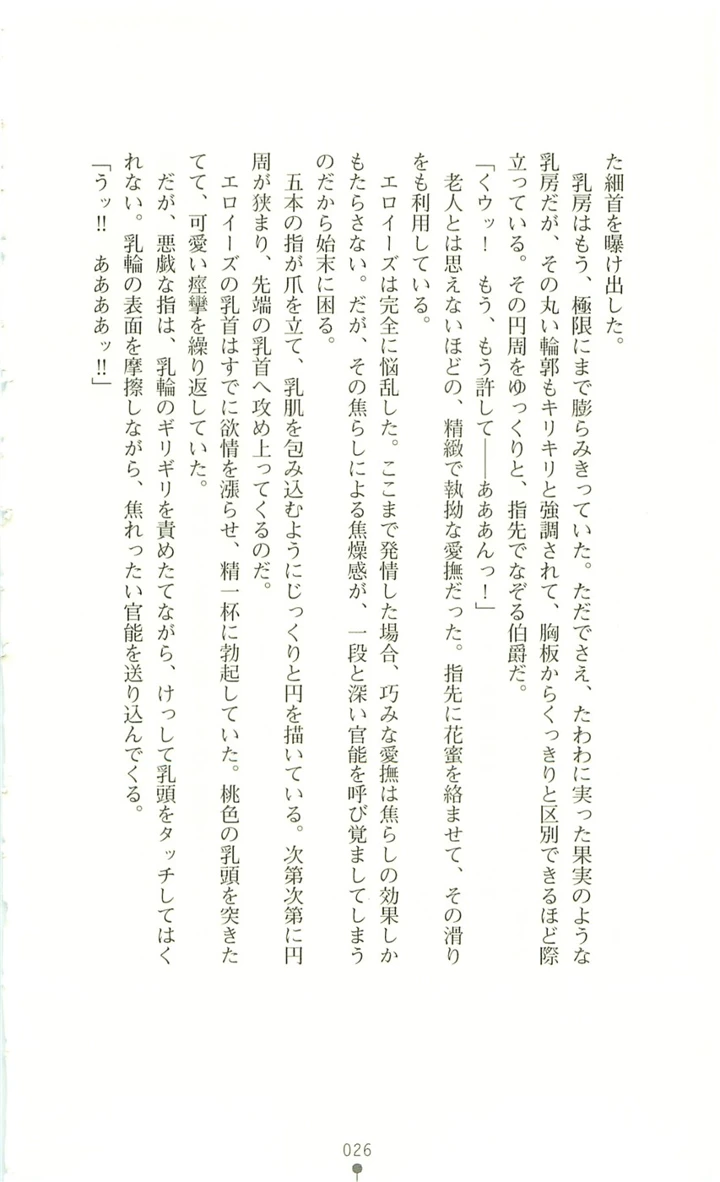 た細首を曝け出した。
　乳房はもう、極限にまで膨らみきっていた。ただでさえ、たわわに実った果実のような
乳房だが、その丸い輪郭もキリキリと強調されて、胸板からくっきりと区別できるほど際
立っている。その円周をゆっくりと、指先でなぞる伯爵だ。
「くウッ！　もう、もう許して――あああんっ！」
　老人とは思えないほどの、精緻で執拗な愛撫だった。指先に花蜜を絡ませて、その滑り
をも利用している。
　エロイーズは完全に悩乱した。ここまで発情した場合、巧みな愛撫は焦らしの効果しか
もたらさない。だが、その焦らしによる焦燥感が、一段と深い官能を呼び覚ましてしまう
のだから始末に困る。
　五本の指が爪を立て、乳肌を包み込むようにじっくりと円を描いている。次第次第に円
周が狭まり、先端の乳首へ攻め上ってくるのだ。
　エロイーズの乳首はすでに欲情を漲らせ、精一杯に勃起していた。桃色の乳頭を突きた
てて、可愛い痙攣を繰り返していた。
　だが、悪戯な指は、乳輪のギリギリを責めたてながら、けっして乳頭をタッチしてはく
れない。乳輪の表面を摩擦しながら、焦れったい官能を送り込んでくる。
「うッ!!　ああああッ!!」
026